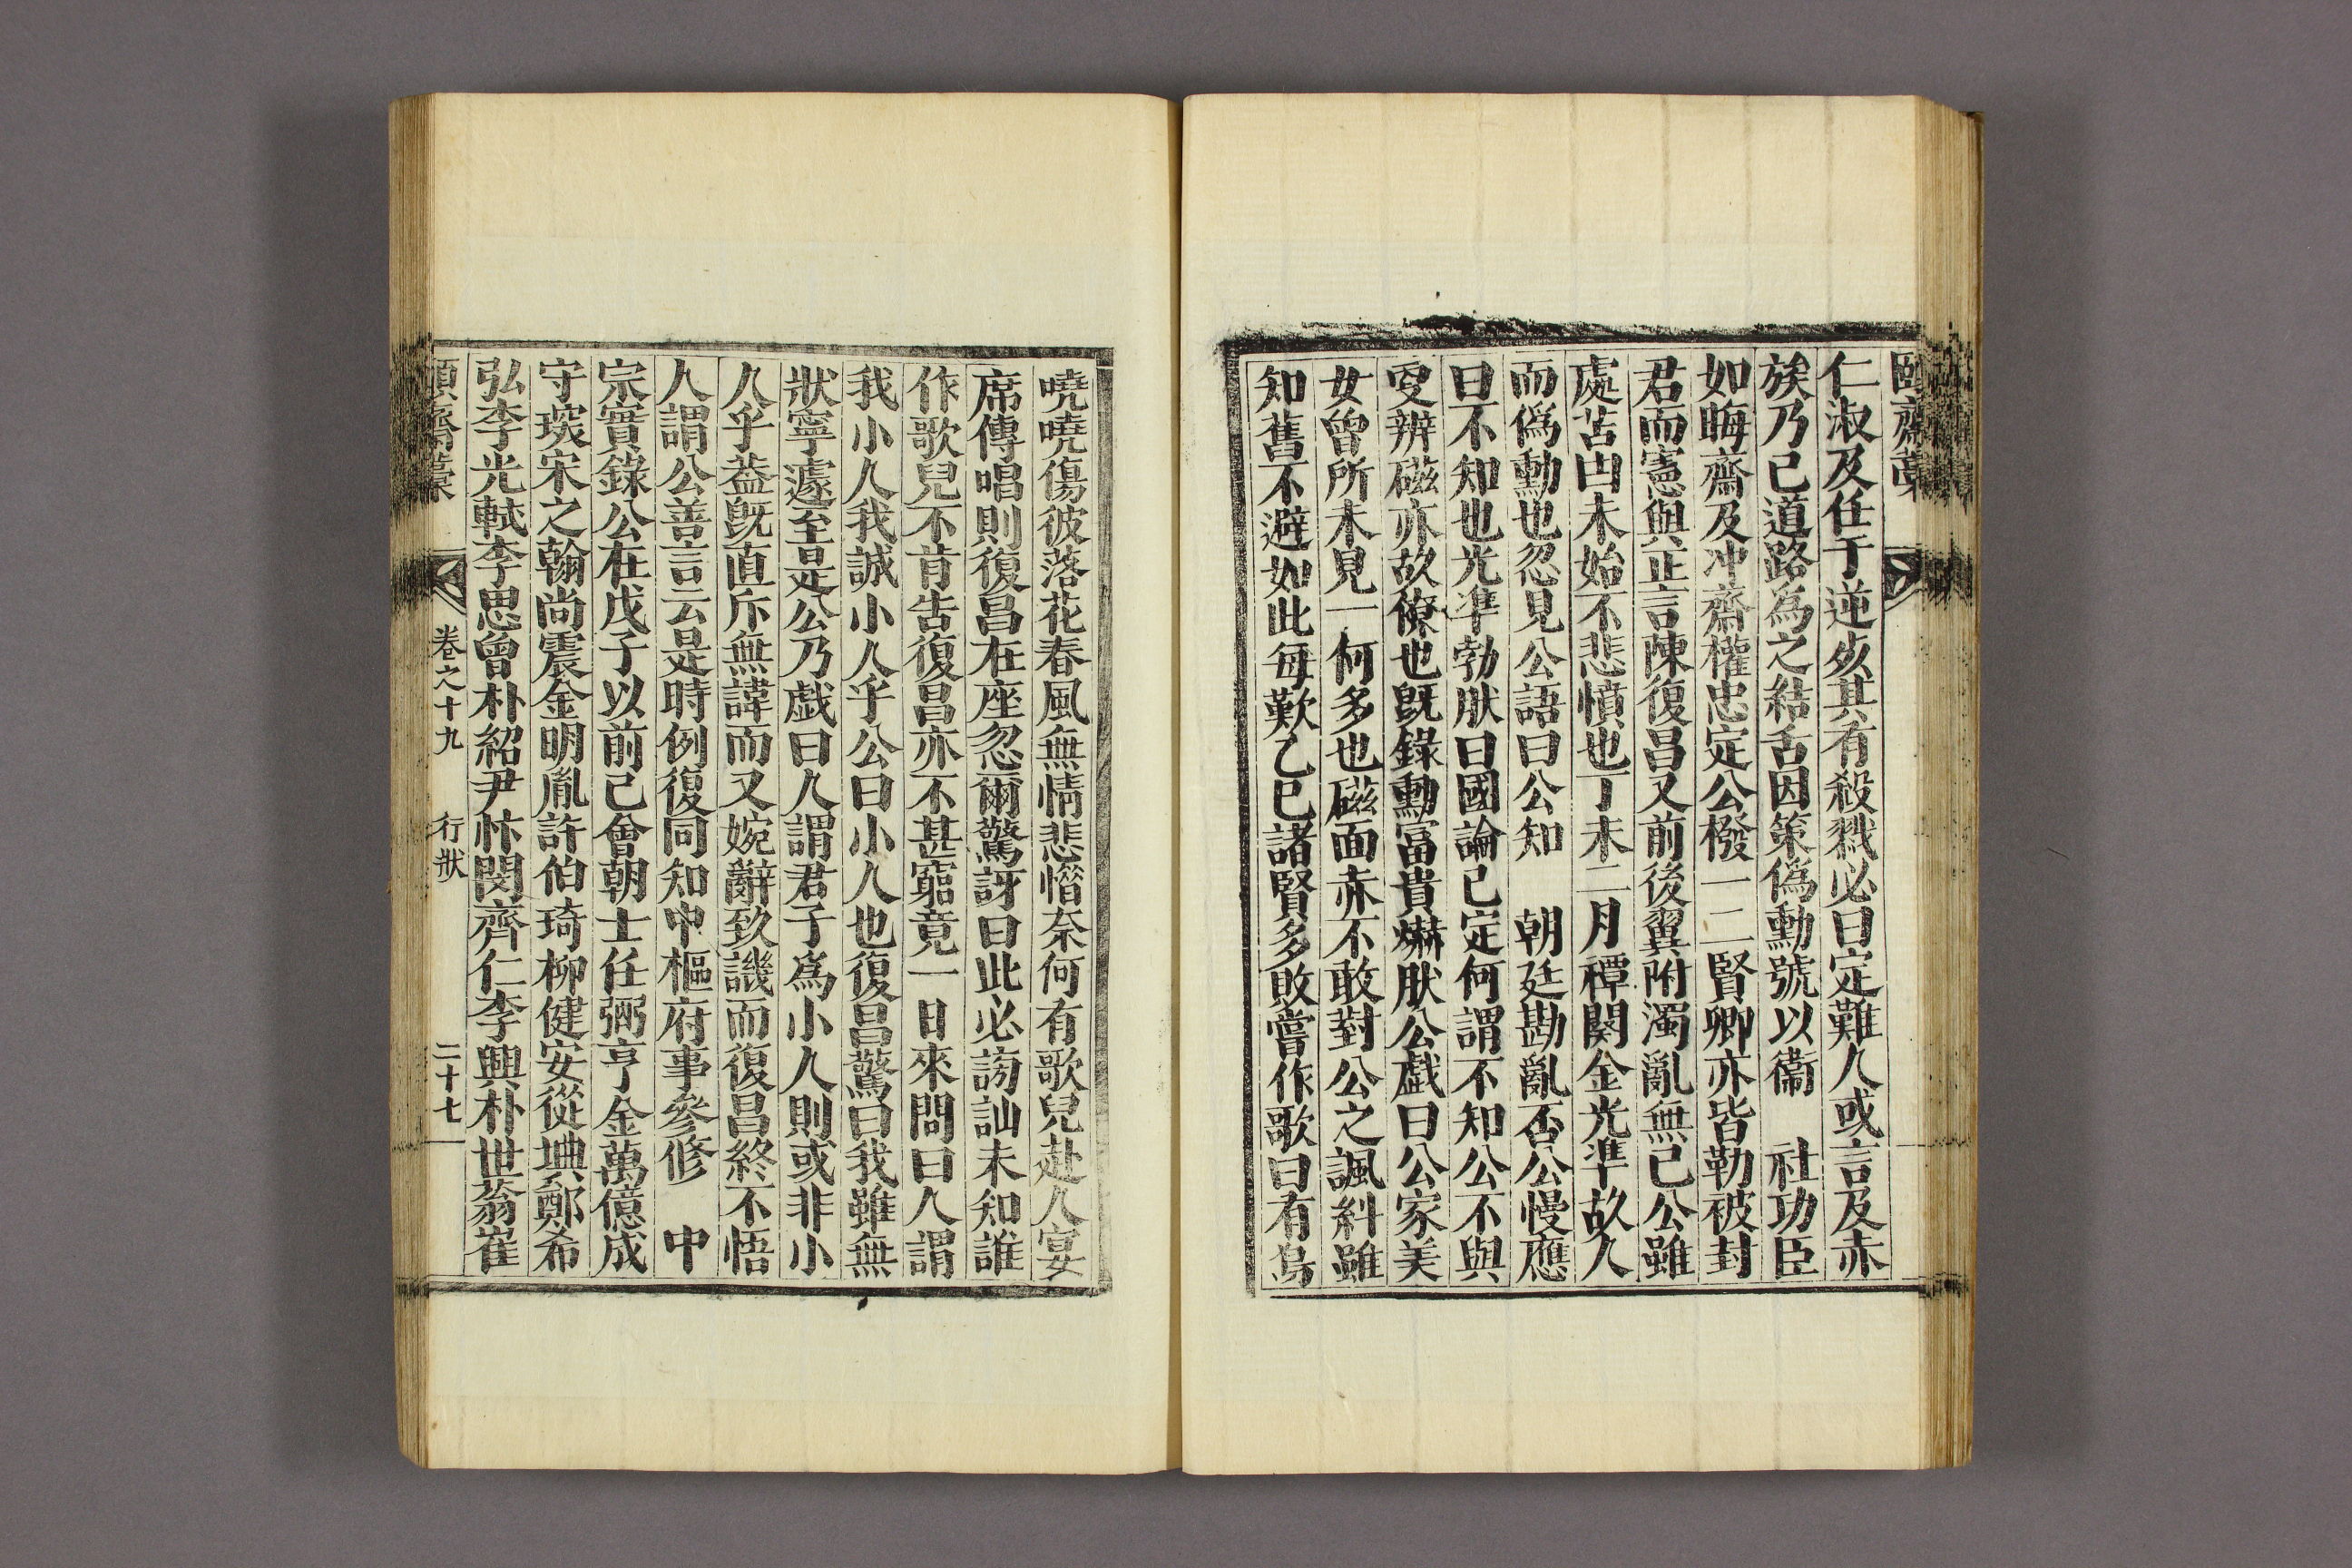 頤齋藁
仁淑及任于逆岌其有殺戮必曰定難人或言及赤
族乃已道路為之結舌因策僞勳號以衞　社功臣
如晦齋及冲齋權忠定公橃一二賢卿亦皆勒被封
君而憲與正言陳復昌又前後翼附濁亂無已公雖
處苫甴未始不悲憤也丁未二月禫闋金光準故人
而僞勳也忽見公語曰公知　朝廷勘亂否公慢應
曰不知也光準勃肰曰國論已定何謂不知公不與
㕛辨磁亦故僚也旣錄勳富貴爀肰公戱曰公家美
女曾所未見一何多也磁面赤不敢對公之諷紏雖
知舊不避如此每歎乙巳諸賢多敗嘗作歌曰有鳥
嘵嘵傷彼落花春風無情悲惜奈何有歌兒赴人宴
席傳唱則復昌在座忽爾驚訝曰此必謗訕未知誰
作歌兒不肯告復昌亦不甚窮竟一日來問曰人謂
我小人我誠小人乎公曰小人也復昌驚曰我雖無
狀寧遽至是公乃戱曰人謂君子為小人則或非小
人乎盖旣直斥無諱而又婉辭致譏而復昌終不悟
人謂公善言云是時例復同知中樞府事參修　中
宗實錄公在戊子以前已曾朝士任弼亨金萬億成
守琰宋之翰尚震金明胤許伯琦柳健安從㙉鄭希
弘李光軾李思曾朴紹尹忭閔齊仁李興朴世蓊崔
頤齋藁　卷之十九　行狀　二十七